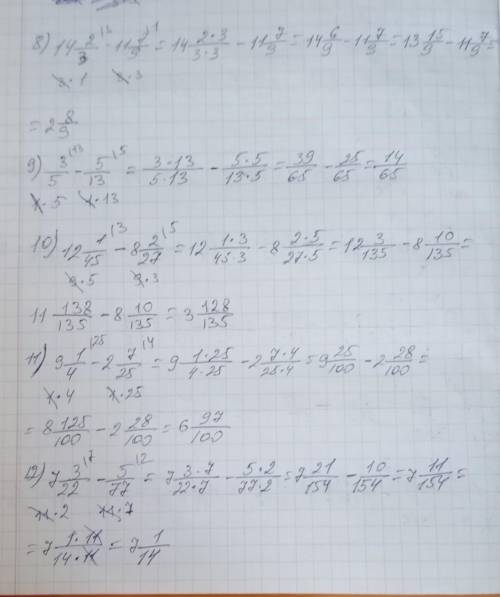 8) 14 2/3 |3 - 11 7/9 |1 = 14 2·3/3·3 - 11 7/9 = 14 6/9 - 11 7/9 = 13 15/9 - 11 7/9 =
3·1 3·3
= 2 8/9
9) 3/5 |13 - 5/13 |5 = 3·13/5·13 - 5·5/13·5 = 39/65 - 25/65 = 14/65
1·5 1·13
10) 12 1/45 |3 - 8 2/27 |5 = 12 1·3/45·3 - 8 2·5/27·5 = 12 3/135 - 8 10/135 =
9·5 9·3
11 138/135 - 8 10/135 = 3 128/135
11) 9 1/4 |25 - 2 7/25 |4 = 9 1·25/4·25 - 2 7·4/25·4 = 9 25/100 - 2 28/100 =
1·4 1·25
= 8 125/100 - 2 28/100 = 6 97/100
12) 7 3/22 |7 - 5/77 |2 = 7 3·7/22·7 - 5·2/77·2 = 7 21/154 - 10/154 = 7 11/154 =
11·2 11·7
= 7 1·11/14·11 = 7 1/14